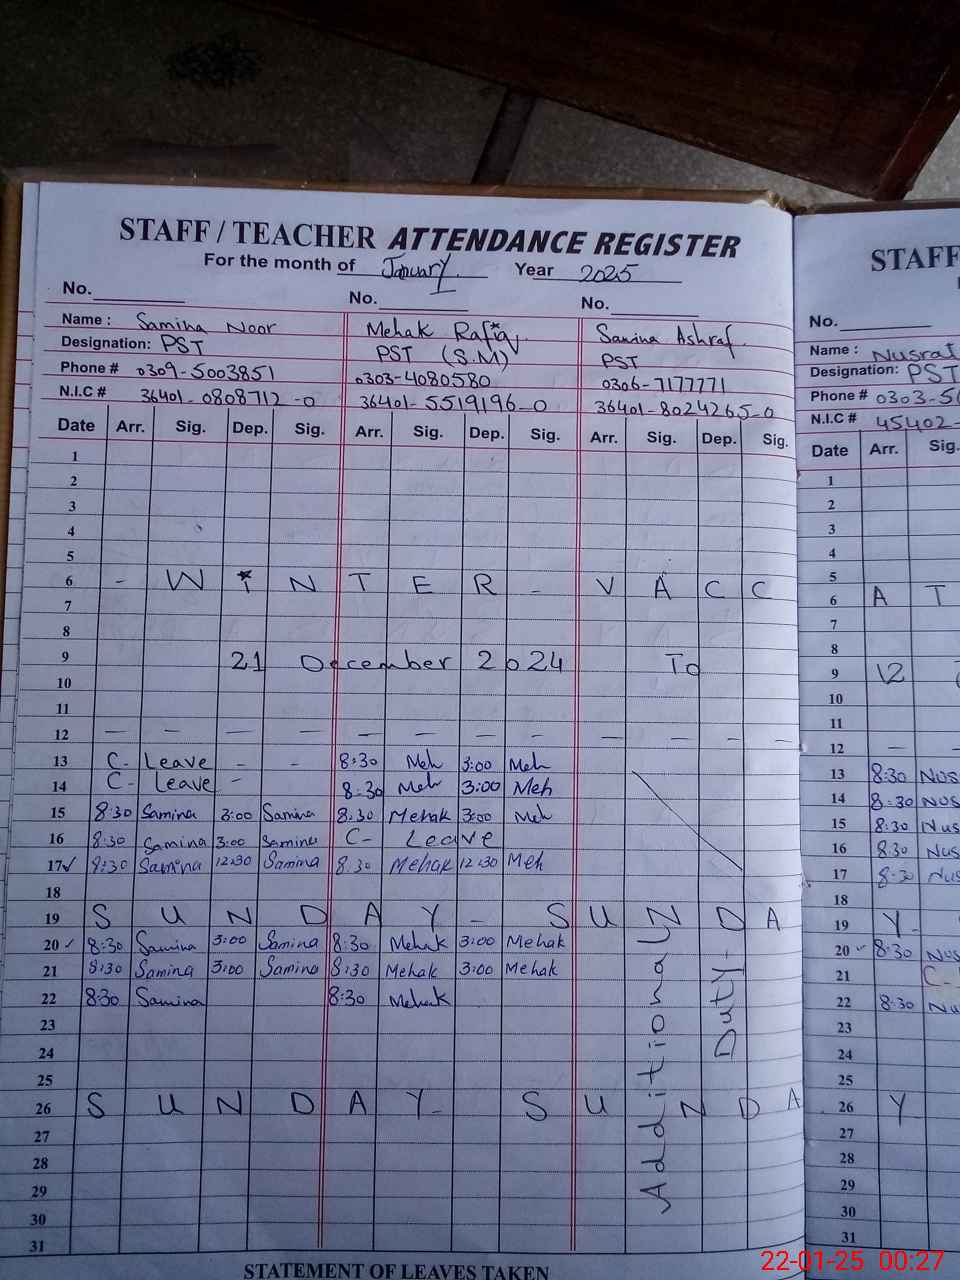 STAFF / TEACHER ATTENDANCE REGISTER
For the month of January Year 2025
No. No. No.
Name : Samina Noor Mehak Rafiq Samina Ashraf
Designation: PST PST (S.M) PST
Phone # 0309-5003851 0303-4080580 0306-7177771
N.I.C # 36401-0808712-0 36401-5519196-0 36401-8024265-0
Date Arr. Sig. Dep. Sig. Arr. Sig. Dep. Sig. Arr. Sig. Dep. Sig.
1
2
3
4
5
6 - WINTER - VACC
7
8
9 21 December 2024 To
10
11
12 — — — — — — — — — — — —
13 C- Leave - - 8:30 Meh 3:00 Meh
14 C- Leave - 8:30 Meh 3:00 Meh
15 8:30 Samina 3:00 Samina 8:30 Mehak 3:00 Meh
16 8:30 Samina 3:00 Samina C- Leave
17 ✓ 8:30 Samina 12:30 Samina 8:30 Mehak 12:30 Meh
18
19 SUNDAY - SUNDA
20 ✓ 8:30 Samina 3:00 Samina 8:30 Mehak 3:00 Mehak
21 8:30 Samina 3:00 Samina 8:30 Mehak 3:00 Mehak
22 8:30 Samina 8:30 Mehak
23
24
25
26 SUNDAY - SUNDA
27
28
29
30
31
Additional
Duty
STATEMENT OF LEAVES TAKEN
STAFF
No.
Name : Nusrat
Designation: PST
Phone # 0303-5
N.I.C # 45402-
Date Arr. Sig.
1
2
3
4
5
6 A T
7
8
9 12
10
11
12 — —
13 8:30 Nus
14 8:30 Nus
15 8:30 Nus
16 8:30 Nus
17 8:30 Nus
18
19 Y-
20 ✓ 8:30 Nus
21 C-
22 8:30 Nu
23
24
25
26 Y-
27
28
29
30
31
22-01-25 00:27